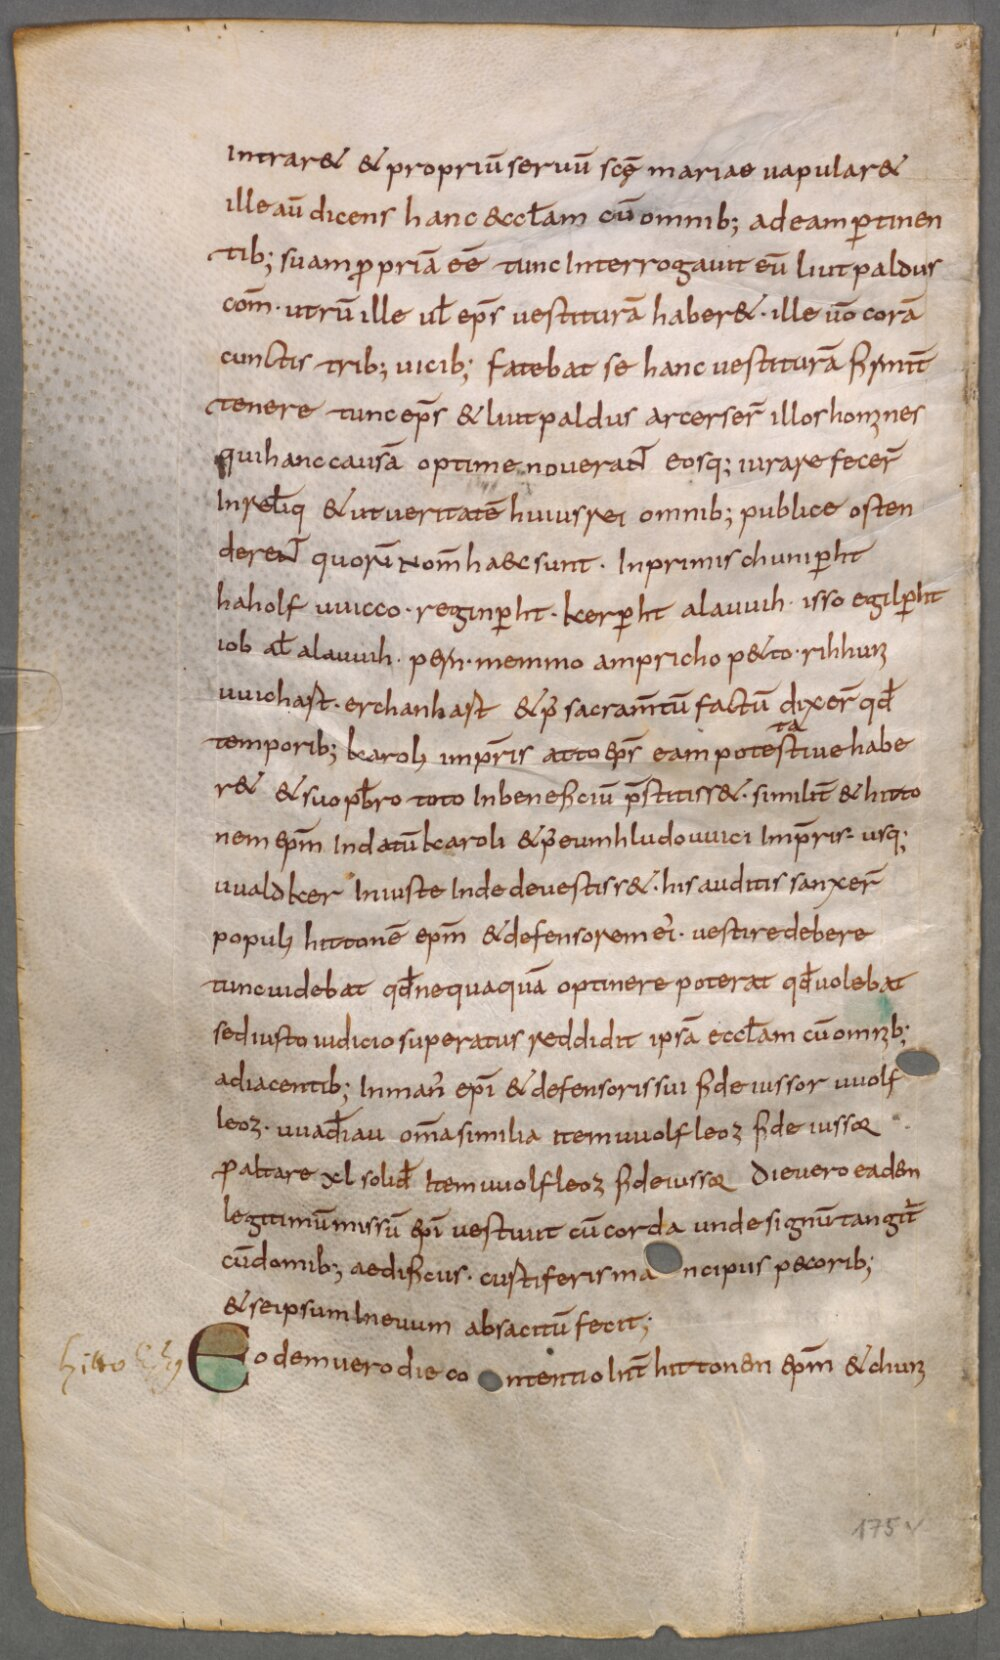 intrar& & propriū seruū scę mariae uapular&
ille aū dicens hanc &ccłam cū omnib; ad eam ptinen
tib; suam ppriā eē tunc interrogauit eū liutpaldus
com̄. utrū ille ul̄ ep̄s uestiturā haber&. ille uō corā
cunctis trib; uicib; fatebat se hanc uestiturā firmit̄
tenere tunc ep̄s & liutpaldus arcerser̄ illos homines
qui hanc causā optime nouerant eosq; iurare fecer̄
In reliq & ut ueritatē huius rei omnib; publice osten
derent quorū nom̄ haec sunt. Inprimis chunipht
haholf uuicco. reginpht. kerpht alauuih. isso egilpht
iob al̄ alauuih. pern. memmo ampricho p&to. rihhuni
uuichast. erchanhast & p sacram̄tū factū dixer̄ qd̄
temporib; karoli impr̄is atto ep̄s eam potestatiue habe
r& & suo pbr̄o toto In beneficiū p̄stitiss&. similit̄ & hitto
nem ep̄m In datū karoli & p eum hludouuici Impr̄is. usq;
uualdker Iniuste Inde deuestiss&. his auditis sanxer̄
populi hittonē ep̄m & defensorem ei. uestire debere
tunc uidebat qd̄ nequaquā optinere poterat qd̄ uolebat
sed iusto iudicio superatus reddidit ipsā eccłam cū omnib;
adiacentib; In man̄ ep̄i & defensoris sui fideiussor uuolf
leoz. uuadiau om̄a similia item uuolfleoz fideiussor
paltare xl solid̄ Item uuolfleoz fideiussor Die uero eadem
legitimū missū ep̄i uestiuit cū corda unde signū tangit̄
cū domib; aedificiis. custiferis mancipiis pecorib;
& seipsum In euum absacitū fecit;
Eodem uero die contentio Int̄ hittonem ep̄m & chuni
hitto Ep̄s
175v